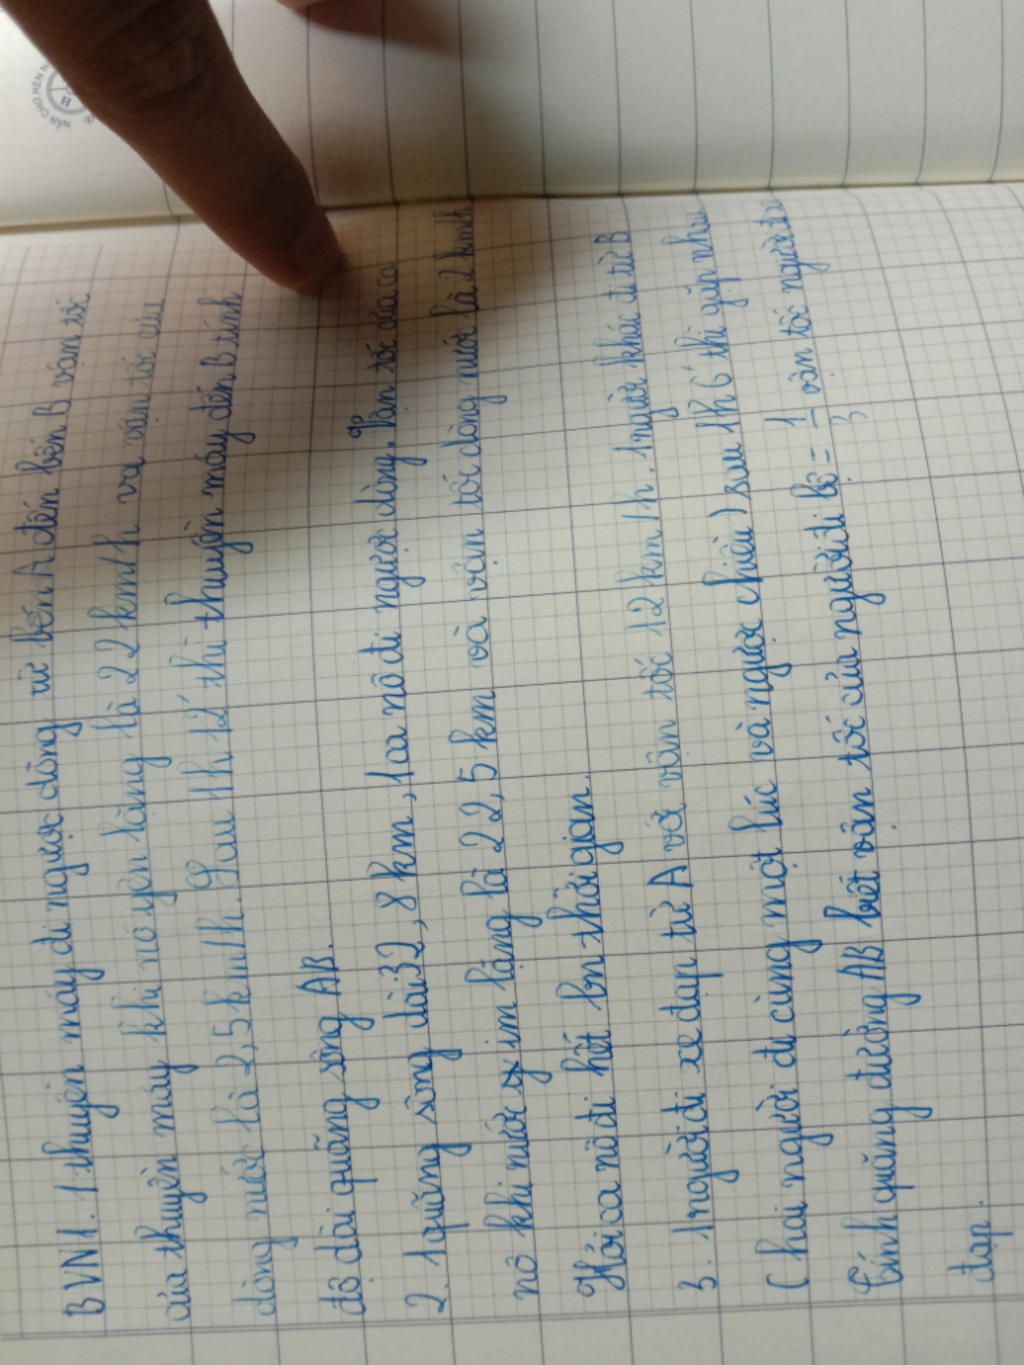 BVN1. 1 thuyền máy đi ngược dòng từ bến A đến bến B vận tốc
của thuyền máy khi nó yên lặng là 22 km/h và vận tốc của
dòng nước là 2,5km/h. Sau 1h 12' thì thuyền máy đến B tính
độ dài quãng sông AB.
2. 1 quãng sông dài 32,8 km, 1 ca nô đi ngược dòng. Vận tốc của ca
nô khi nước im lặng là 22,5 km và vận tốc dòng nước là 2 km/h
Hỏi ca nô đi hết bn thời gian.
3. 1 người đi xe đạp từ A với vận tốc 12 km/h. 1 người khác đi từ B
(hai người đi cùng một lúc và ngược chiều) sau 1h 6' thì gặp nhau
tính quãng đường AB biết vận tốc của người đi bộ = 1/3 vận tốc người đi
đạp.
NÂN CHỮ RÈN N
H